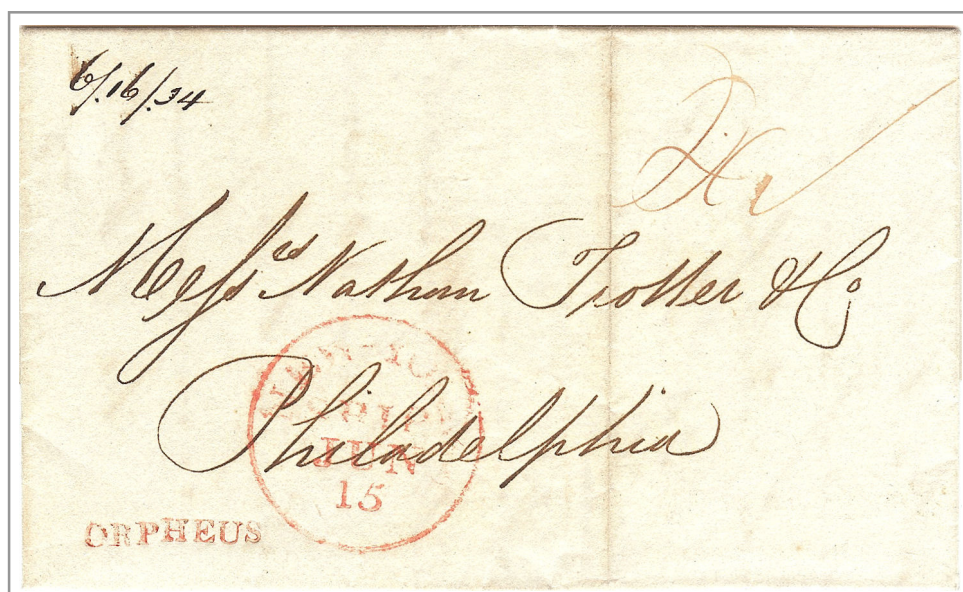 6/.16/.34
Messrs Nathan Trotter & Co
Philadelphia
NEW-YORK
SHIP
JUN
15
ORPHEUS